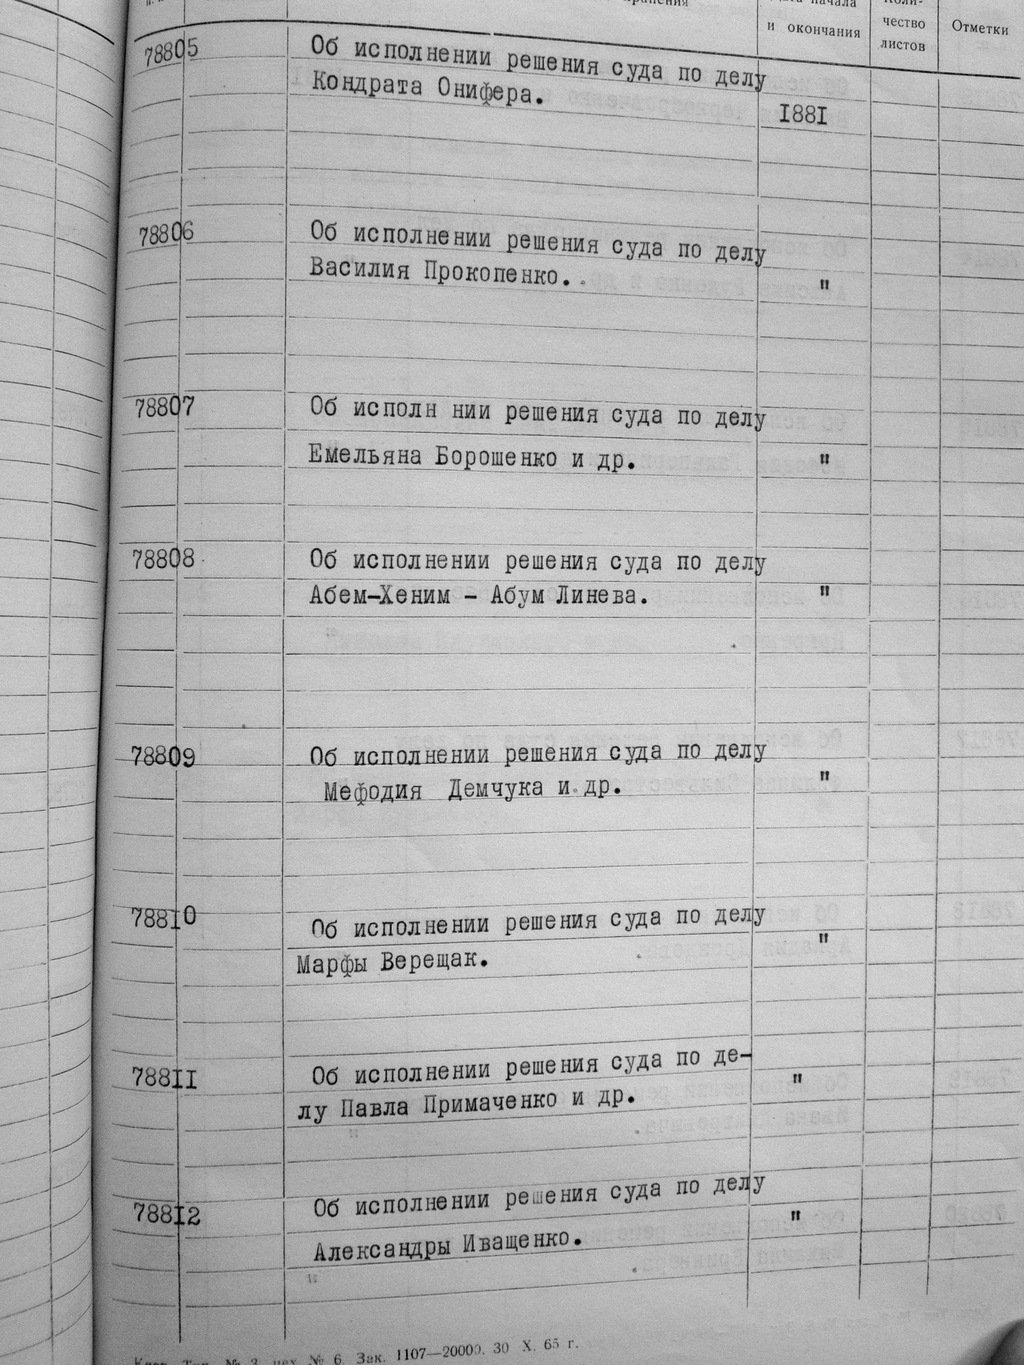 и окончания
чество
листов
Отметки
78805
Об исполнении решения суда по делу
Кондрата Онифера.
I88I
78806
Об исполнении решения суда по делу
Василия Прокопенко.
"
78807
Об исполн нии решения суда по делу
Емельяна Борошенко и др.
"
78808
Об исполнении решения суда по делу
Абем-Хеним - Абум Линева.
"
78809
Об исполнении решения суда по делу
Мефодия Демчука и др.
"
788I0
Об исполнении решения суда по делу
Марфы Верещак.
"
788II
Об исполнении решения суда по де-
лу Павла Примаченко и др.
"
788I2
Об исполнении решения суда по делу
Александры Иващенко.
"
№ 6. Зак. 1107—20000. 30 X. 65 г.